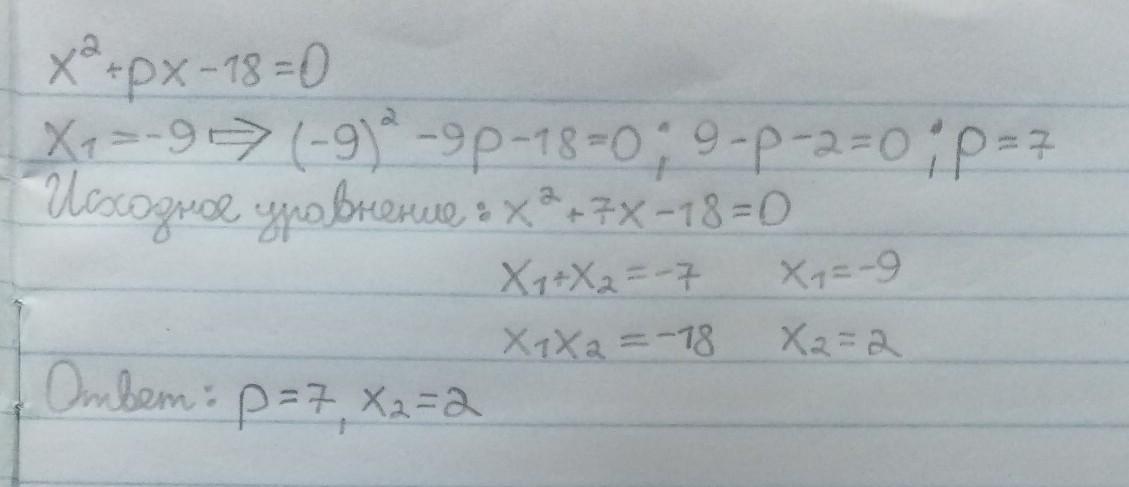 x²+px-18=0
x₁=-9⇒(-9)²-9p-18=0; 9-p-2=0; p=7
Исходное уравнение: x²+7x-18=0
x₁+x₂=-7 x₁=-9
x₁x₂=-18 x₂=2
Ответ: p=7, x₂=2